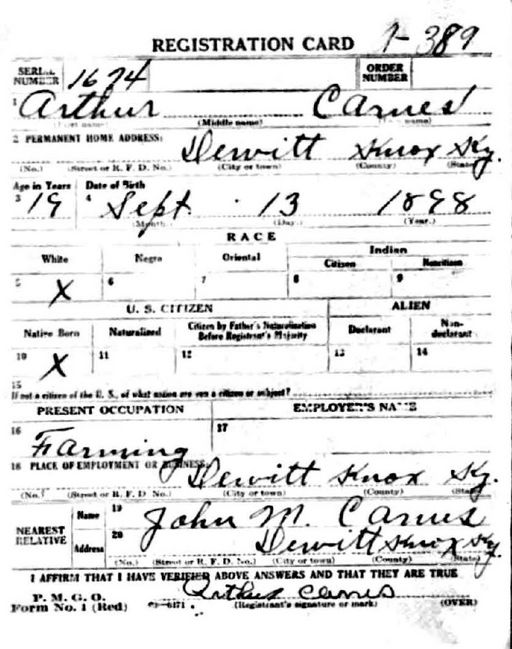 REGISTRATION CARD 1-389
SERIAL NUMBER 1674 ORDER NUMBER
1 Arthur Carnes
(Middle name)
2 PERMANENT HOME ADDRESS: Dewitt Knox Ky.
(No.) (Street or R. F. D. No.) (City or town) (County) (State)
Age in Years Date of Birth
3 19 4 Sept. 13 1898
(Month) (Day) (Year.)
RACE
White Negro Oriental Indian
Citizen Noncitizen
5 X 6 7 8 9
U. S. CITIZEN ALIEN
Native Born Naturalized Citizen by Father's Naturalization Before Registrant's Majority Declarant Non-declarant
10 X 11 12 13 14
15
If not a citizen of the U. S., of what nation are you a citizen or subject?
PRESENT OCCUPATION EMPLOYER'S NAME
16 Farming 17
18 PLACE OF EMPLOYMENT OR BUSINESS: Dewitt Knox Ky.
(No.) (Street or R. F. D. No.) (City or town) (County) (State)
NEAREST RELATIVE Name 19 John M. Carnes
Address 20 Dewitt Knox Ky
(No.) (Street or R. F. D. No.) (City or town) (County) (State)
I AFFIRM THAT I HAVE VERIFIED ABOVE ANSWERS AND THAT THEY ARE TRUE
P. M. G. O. Arthur Carnes
Form No. 1 (Red) (Registrant's signature or mark) (OVER)